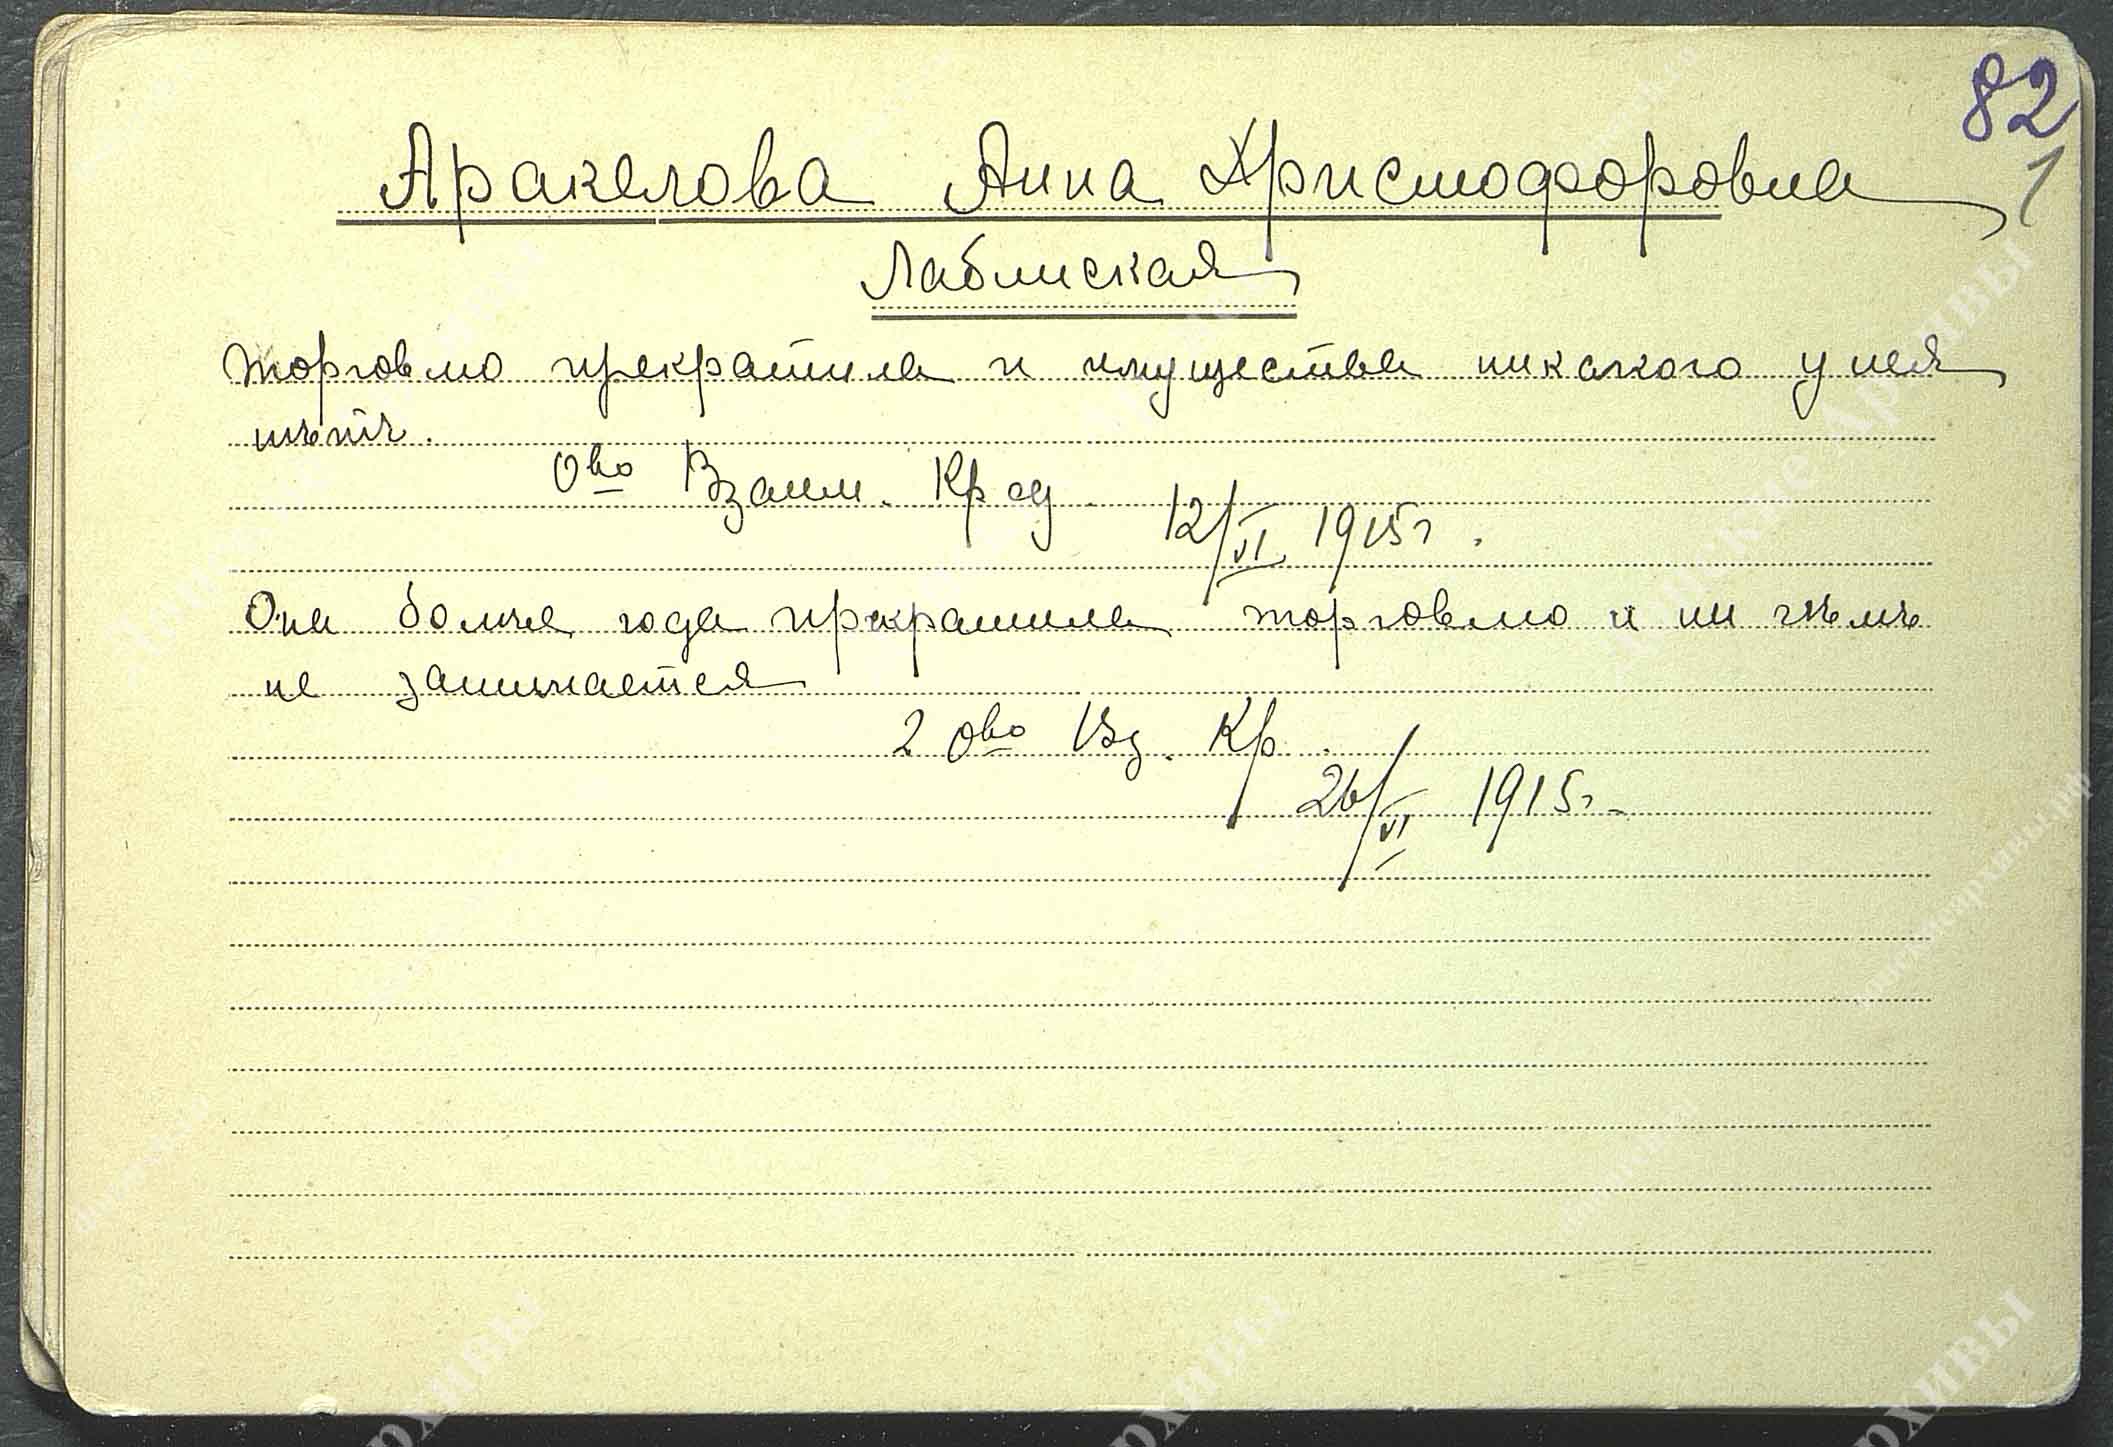 82
1
Аракелова Анна Христофоровна
Лабинская
Торговлю прекратила и имущества никакого у нея
нѣтъ.
О-во Взаим. Кред.
12/VI 1915 г.
Она более года прекратила торговлю и ни чѣмъ
не занимается
2 О-во Вз. Кр.
26/VI 1915 г.